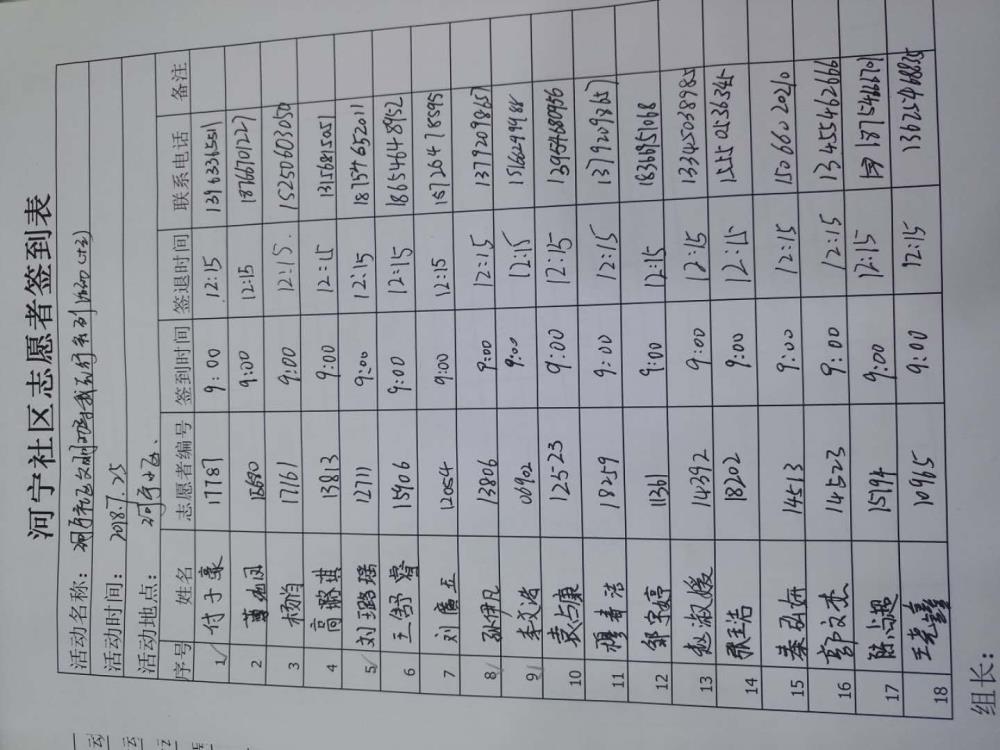 河宁社区志愿者签到表
活动名称：
活动时间：2018.7.25
活动地点：河宁小区.
序号 姓名 志愿者编号 签到时间 签退时间 联系电话 备注
1 付子豪 17787 9:00 12:15 13963365511
2 9:00 12:15 18766701227
3 杨怡 17161 9:00 12:15. 15250603050
4 高璐琪 13813 9:00 12:15 13156815051
5 刘璐瑶 12711 9:00 12:15 18754652011
6 15906 9:00 12:15 18654648952
7 刘 12054 9:00 12:15 18726478595
8 孙伊凡 13806 9:00 12:15 13792098657
9 06902 9:00 12:15
10 袁占康 12523 9:00 12:15 13954680956
11 穆春浩 18259 9:00 12:15 13792098657
12 邹字婷 11361 9:00 12:15 18369951068
13 赵淑媛 14392 9:00 12:15 13345038985
14 张玉浩 18202 9:00 12:15 15550536345
15 秦弘妍 14513 9:00 12:15 15066020210
16 郭文杰 14523 9:00 12:15 13455462666
17 15794 9:00 12:15
18 10965 9:00 12:15
组长：